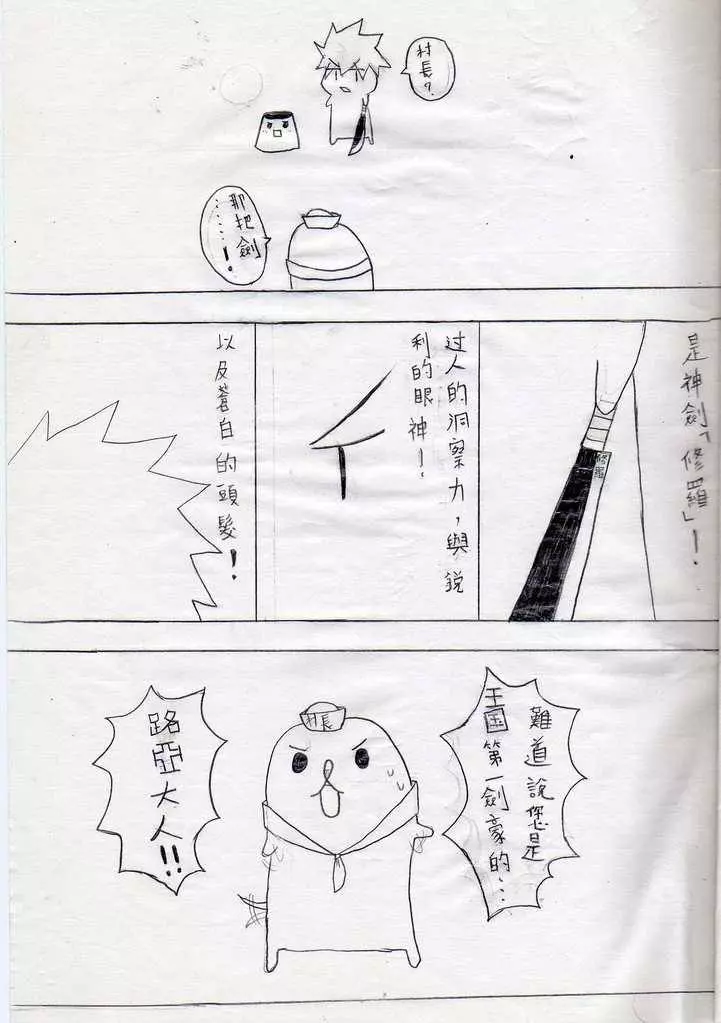 村長？
那把劍
……！
是神劍「修羅」！
修羅
过人的洞察力，與銳
利的眼神！
以及蒼白的頭髮！
難道說您是
王国第一劍豪的…
村長
路亞大人!!